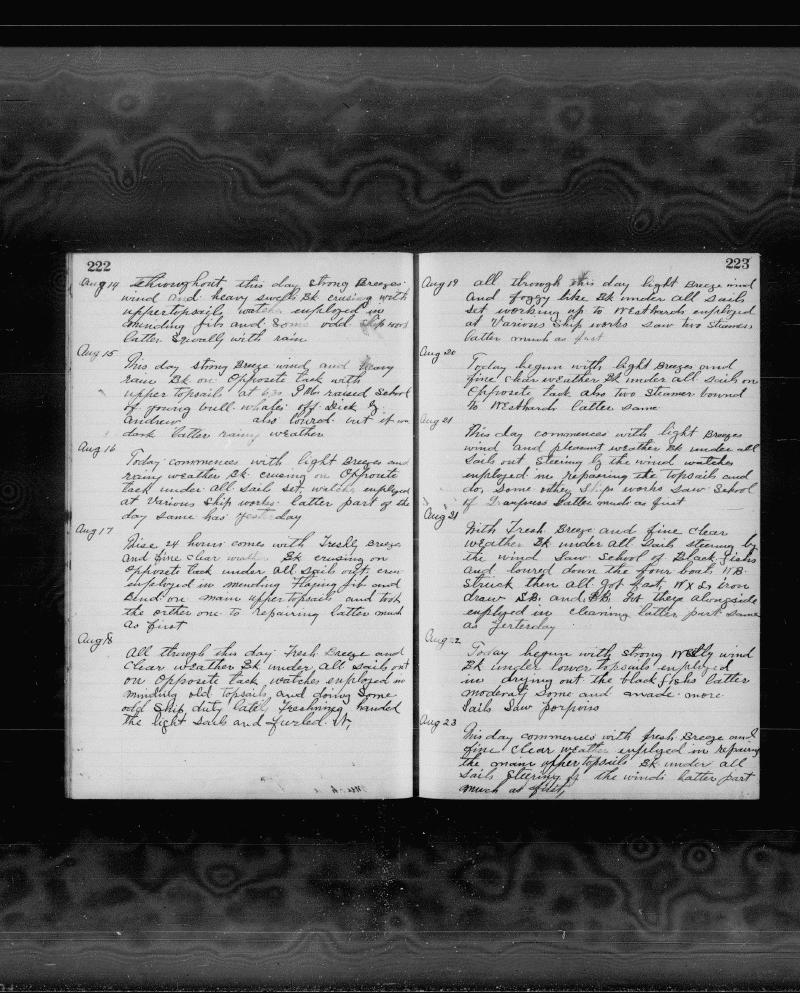 222
Aug 14 Throughout this day strong Breezes
wind and heavy swell Bk crusing with
uppertopsails watches employed in
mending jibs and some odd ship work
latter squally with rain
Aug 15
This day strong Breeze wind and heavy
rain Bk on Opposite tack with
upper topsails at 6.30 P.M. raised School
of young bull whales off Dick &
Andrew also lowred but it was
dark latter rainy weather
Aug 16
Today commences with light Breezes and
rainy weather Bk crusing on Opposite
tack under all sail set, watches employed
at Various Ship works latter part of the
day same has yesterday
Aug 17
These 24 hours comes with Freslly Breeze
and fine clear weath Bk crusing on
Opposit tack under all sails out, crew
employed in mending Flaying jib and
Bend on main upper topsail and took
the orther one to repairing latter much
as first
Aug 18
All through this day Fresh Breeze and
clear weather Bk under all sails out
on Opposite tack watches employed in
minding old topsails and doing Some
odd Ship duty, later Freshning handed
the light sails and furled it,
223
Aug 19 all through this day light Breeze wind
and foggy like Bk under all sails
set working up to Westhards employed
at Various Ship works saw two Steamers
latter much as first
Aug 20
Today begun with light Breezes and
fine clear weather Bk under all sails on
Opposite tack also two Steamer bound
to Westhards latter same
Aug 21
This day commences with light Breezes
wind and pleasent weather Bk under all
sails out Steering by the wind watches
employed in repairing the topsails and
do, Some other Ship works Saw School
of Grampress latter much as first
Aug 21
With Fresh Breeze and fine clear
weather Bk under all Sails steering by
the wind Saw School of Black fishs
and lowred down the four boat, W.B.
struck then all got fast, W x Ls iron
draw S.B. and B.B. Got these alongside
employed in cleaning latter part same
as yesterday
Aug 22
Today begun with strong Wstly wind
Bk under lower topsails employed
in drying out the black fishs latter
moderat Some and made more
sails Saw porpoiss
Aug 23
This day commences with fresh Breeze and
fine clear weather employed in repairing
the main upper topsails Bk under all
sails Steering by the winds latter part
much as first,